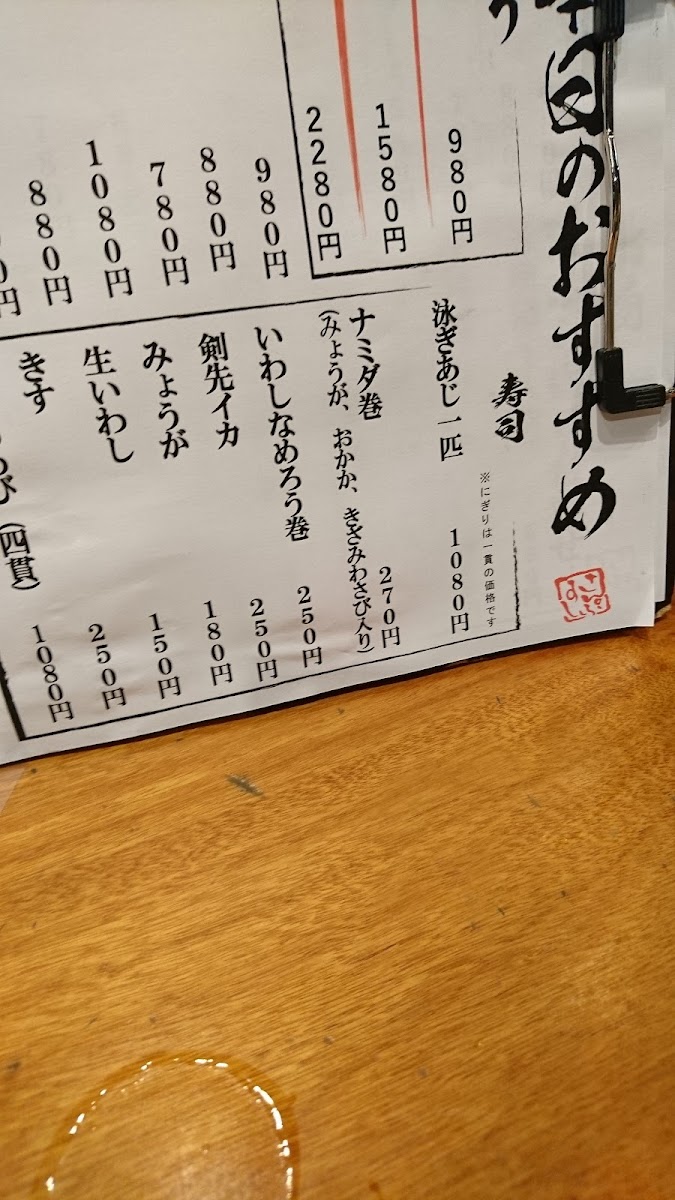 本日のおすすめ
980円
1580円
2280円
980円
880円
780円
1080円
880円
0円
寿司
※にぎりは一貫の価格です
泳ぎあじ一匹 1080円
ナミダ巻 270円
(みょうが、おかか、きざみわさび入り)
いわしなめろう巻 250円
剣先イカ 250円
みょうが 180円
生いわし 150円
きす 250円
び(四貫) 1080円